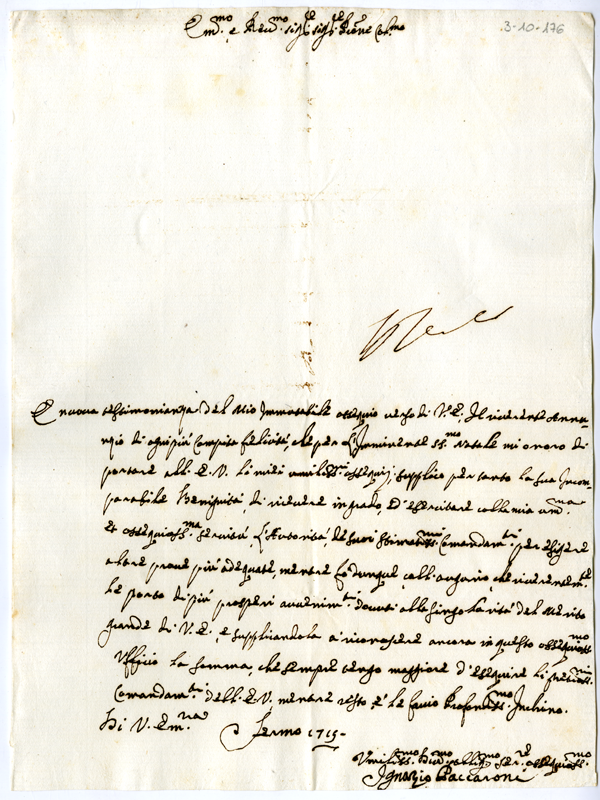 3-10-176
Em.mo e Reu.mo sig.re sig.re Prone Col.mo
È nuova testimonianza del Mio Immutabile ossequio verso di V.E. Il riverente Annu-
nzio di ogni più compita felicità, che per l'Imminente SS.mo Natale mi onoro di
portare all'E.V. li miei umiliss.mi ossequi; supplico per tanto la sua Incom-
parabile Benignità di ricevere in grado, et esercitare colla mia um.ma
et ossequiosiss.ma servitù, l'Autorità de suoi stimatiss.mi Comandam.ti per esigere
altre prove più adequate, mentre fo dunque coll'augurio, che riverentem.te
Le porto di più prosperi avvenim.ti dovuti alla singolarità del Merito
grande di V.E., e supplicandola a riconoscere ancora in questo ossequiosiss.mo
Uffizio la somma, che sempre tengo maggiore d'eseguire li preziosiss.mi
Comandam.ti dell'E.V. mentre resto e le faccio Profondiss.mo Inchino.
Di V. Em.za
Fermo 1715-
Umiliss.mo Diu.mo et Obblig.mo Ser.re ossequiosiss.mo
Ignazio Paccaroni